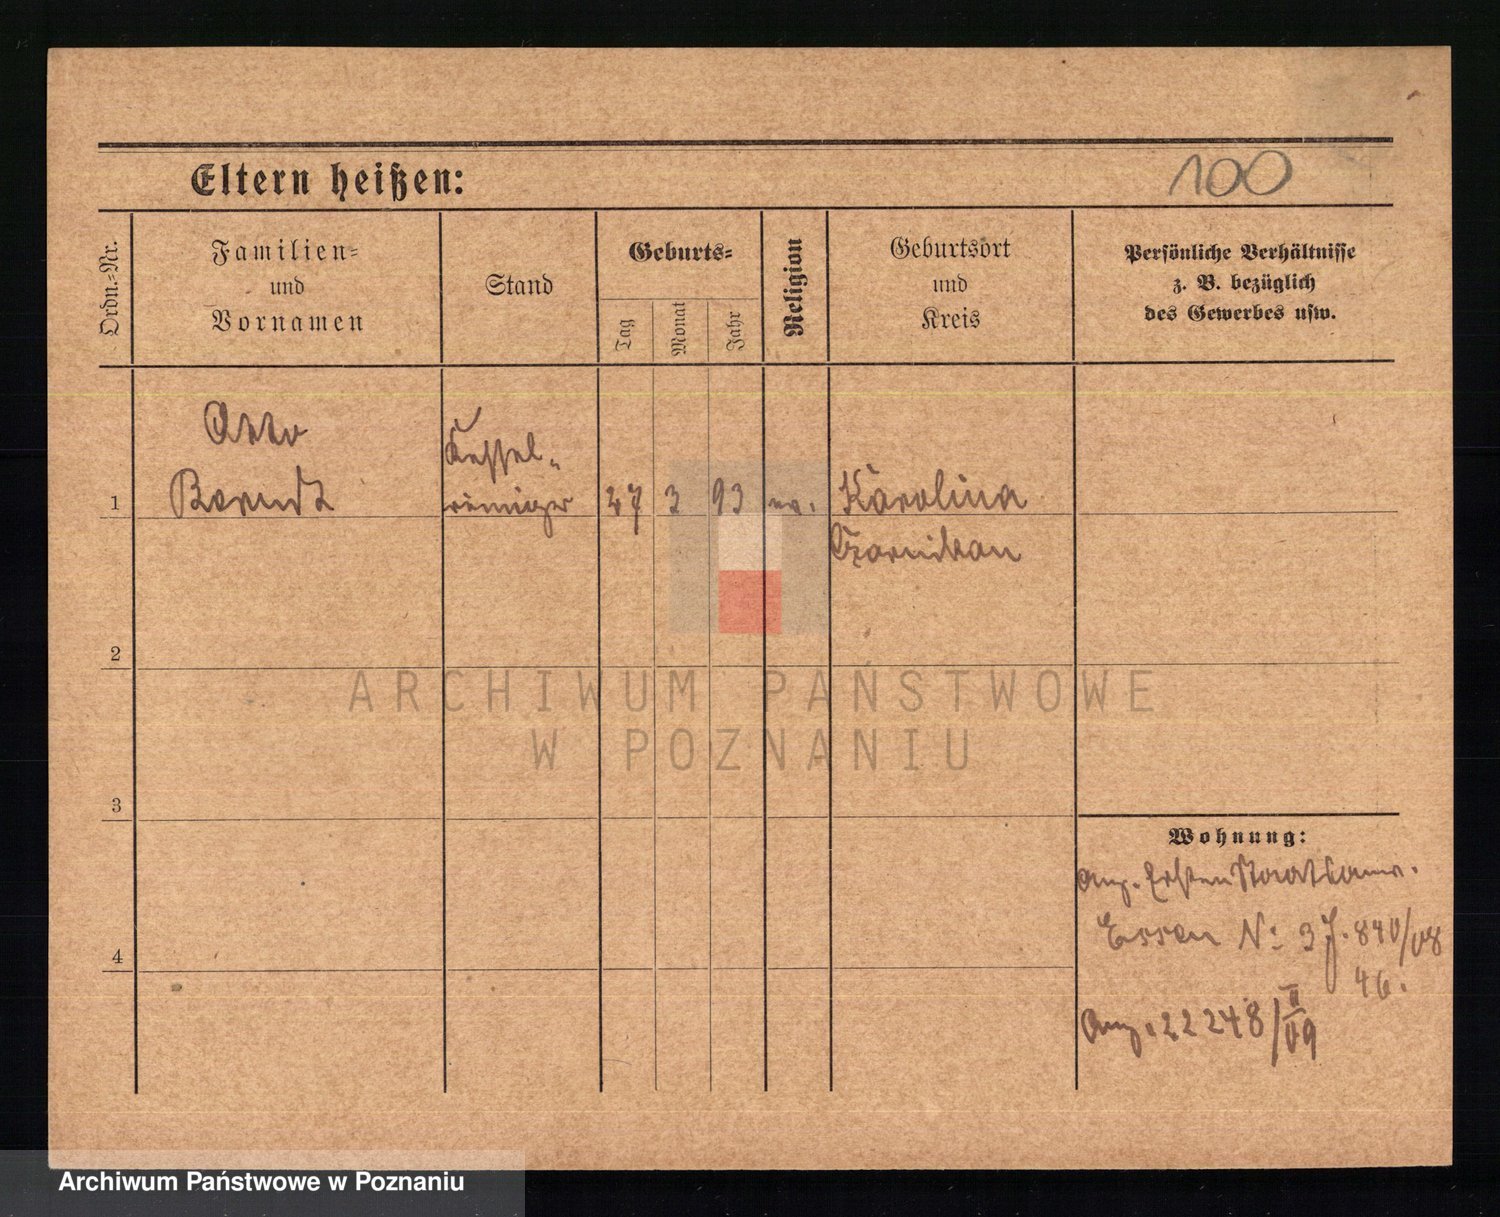 Eltern heißen:
100
Ordn.-Nr.
Familien-
und
Vornamen
Stand
Geburts-
Tag
Monat
Jahr
Religion
Geburtsort
und
Kreis
Persönliche Verhältnisse
z. B. bezüglich
des Gewerbes usw.
Otto
Berndt
Kessel-
reiniger
1
27
3
93
ev.
Karolina
Czarnikau
2
ARCHIWUM PAŃSTWOWE
W POZNANIU
3
Wohnung:
Anz. Ersten Staatsanw.
Essen No: 3 J. 840/08
46.
4
Anz. 22248/II 09
Archiwum Państwowe w Poznaniu